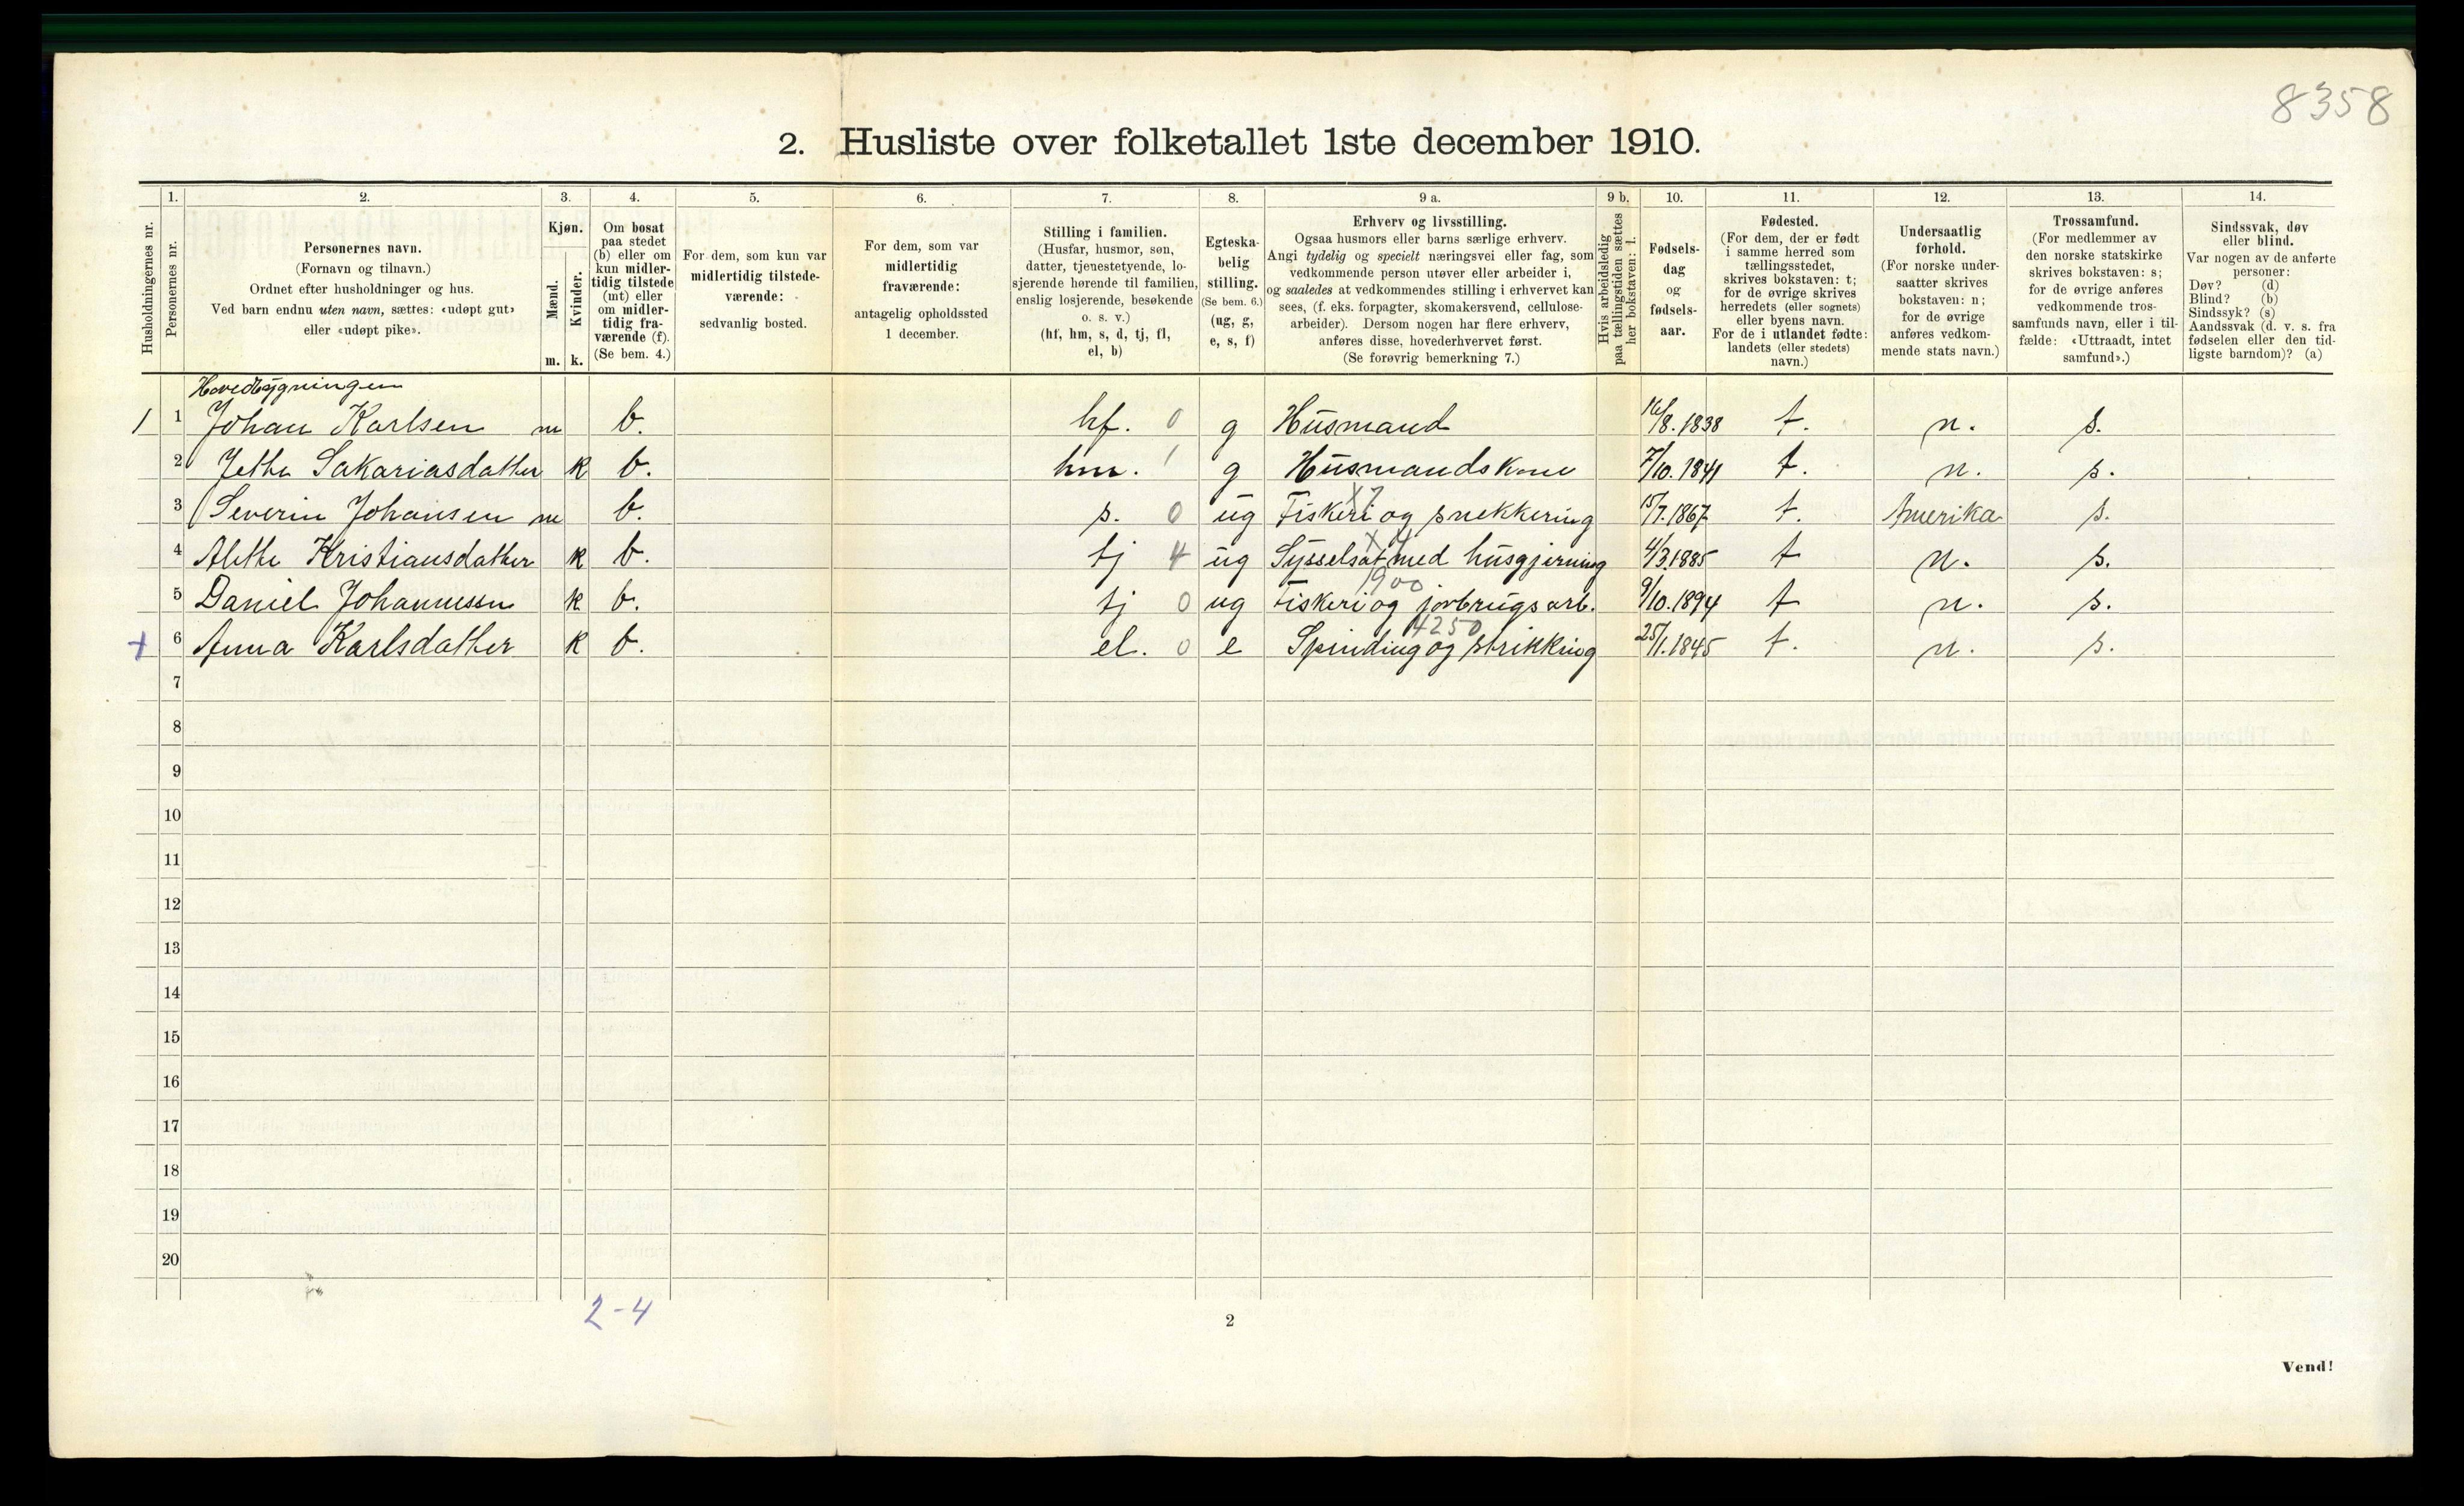 8358
2. Husliste over folketallet 1ste december 1910.
Husholdningernes nr.
1.
Personernes nr.
2.
Personernes navn.
(Fornavn og tilnavn.)
Ordnet efter husholdninger og hus.
Ved barn endnu uten navn, sættes: «udøpt gut»
eller «udøpt pike».
3.
Kjøn.
Mænd.
m.
Kvinder.
k.
4.
Om bosat
paa stedet
(b) eller om
kun midler-
tidig tilstede
(mt) eller
om midler-
tidig fra-
værende (f).
(Se bem. 4.)
5.
For dem, som kun var
midlertidig tilstede-
værende:
sedvanlig bosted.
6.
For dem, som var
midlertidig
fraværende:
antagelig opholdssted
1 december.
7.
Stilling i familien.
(Husfar, husmor, søn,
datter, tjenestetyende, lo-
sjerende hørende til familien,
enslig losjerende, besøkende
o. s. v.)
(hf, hm, s, d, tj, fl,
el, b)
8.
Egteska-
belig
stilling.
(Se bem. 6.)
(ug, g,
e, s, f)
9 a.
Erhverv og livsstilling.
Ogsaa husmors eller barns særlige erhverv.
Angi tydelig og specielt næringsvei eller fag, som
vedkommende person utøver eller arbeider i,
og saaledes at vedkommendes stilling i erhvervet kan
sees, (f. eks. forpagter, skomakersvend, cellulose-
arbeider). Dersom nogen har flere erhverv,
anføres disse, hovederhvervet først.
(Se forøvrig bemerkning 7.)
9 b.
Hvis arbeidsledig
paa tællingstiden sættes
her bokstaven: l.
10.
Fødsels-
dag
og
fødsels-
aar.
11.
Fødested.
(For dem, der er født
i samme herred som
tællingsstedet,
skrives bokstaven: t;
for de øvrige skrives
herredets (eller sognets)
eller byens navn.
For de i utlandet fødte:
landets (eller stedets)
navn.)
12.
Undersaatlig
forhold.
(For norske under-
saatter skrives
bokstaven: n;
for de øvrige
anføres vedkom-
mende stats navn.)
13.
Trossamfund.
(For medlemmer av
den norske statskirke
skrives bokstaven: s;
for de øvrige anføres
vedkommende tros-
samfunds navn, eller i til-
fælde: «Uttraadt, intet
samfund».)
14.
Sindssvak, døv
eller blind.
Var nogen av de anførte
personer:
Døv? (d)
Blind? (b)
Sindssyk? (s)
Aandssvak (d. v. s. fra
fødselen eller den tid-
ligste barndom)? (a)
Hovedbygningen
1 1 Johan Karlsen m b. hf. 0 g Husmand 16/8.1838 t. n. s.
2 Jethe Sakariasdatter k b. hm. 1 g Husmandskone 7/10.1841 t. n. s.
3 Severin Johansen m b. s. 0 ug Fiskeri og snekkering 15/7.1867 t. Amerika s.
4 Alethe Kristiansdatter k b. tj 4 ug Sysselsat med husgjerning 4/3.1885 t n. s.
1900
5 Daniel Johannessn k b. tj 0 ug Fiskeri og jorbrugsarb. 9/10.1894 t n. s.
4250
+ 6 Anna Karlsdatter k b. el. 0 e Spinding og strikking 25/1.1845 t. n. s.
7
8
9
10
11
12
13
14
15
16
17
18
19
20
2-4
2
Vend!